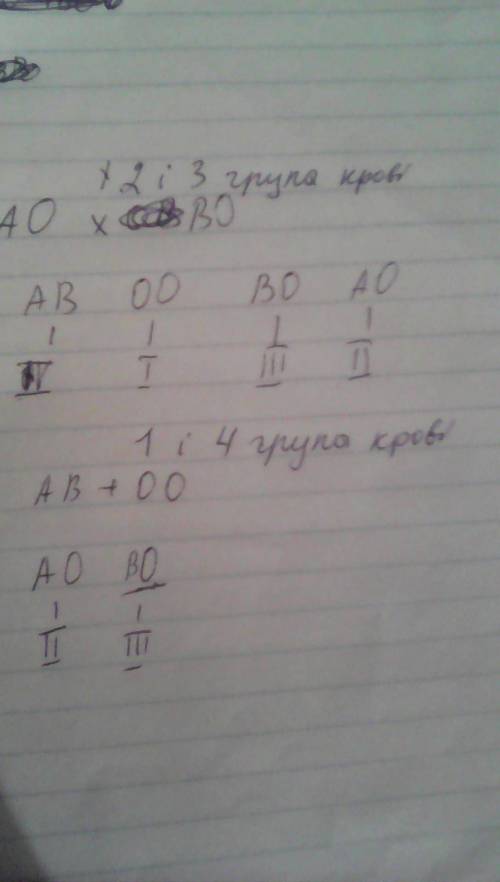 + 2 і 3 група крові
AO × BO
AB OO BO AO
I I I I
IV I III II
1 і 4 група крові
AB + OO
AO BO
I I
II III